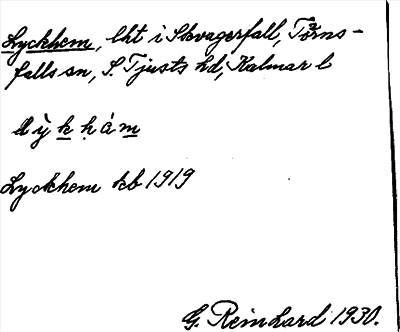 Lyckhem, lht i Skvagerfall, Törns-
falls sn, S. Tjusts hd, Kalmar l
lỳk ḥám
Lyckhem kb 1919
G. Reinhard 1930.